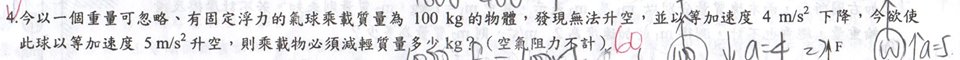 4.今以一個重量可忽略、有固定浮力的氣球乘載質量為 100 kg 的物體,發現無法升空,並以等加速度 4 m/s² 下降,今欲使
此球以等加速度 5 m/s² 升空,則乘載物必須減輕質量多少 kg?(空氣阻力不計) 60 ↓a=4 F ↑a=5